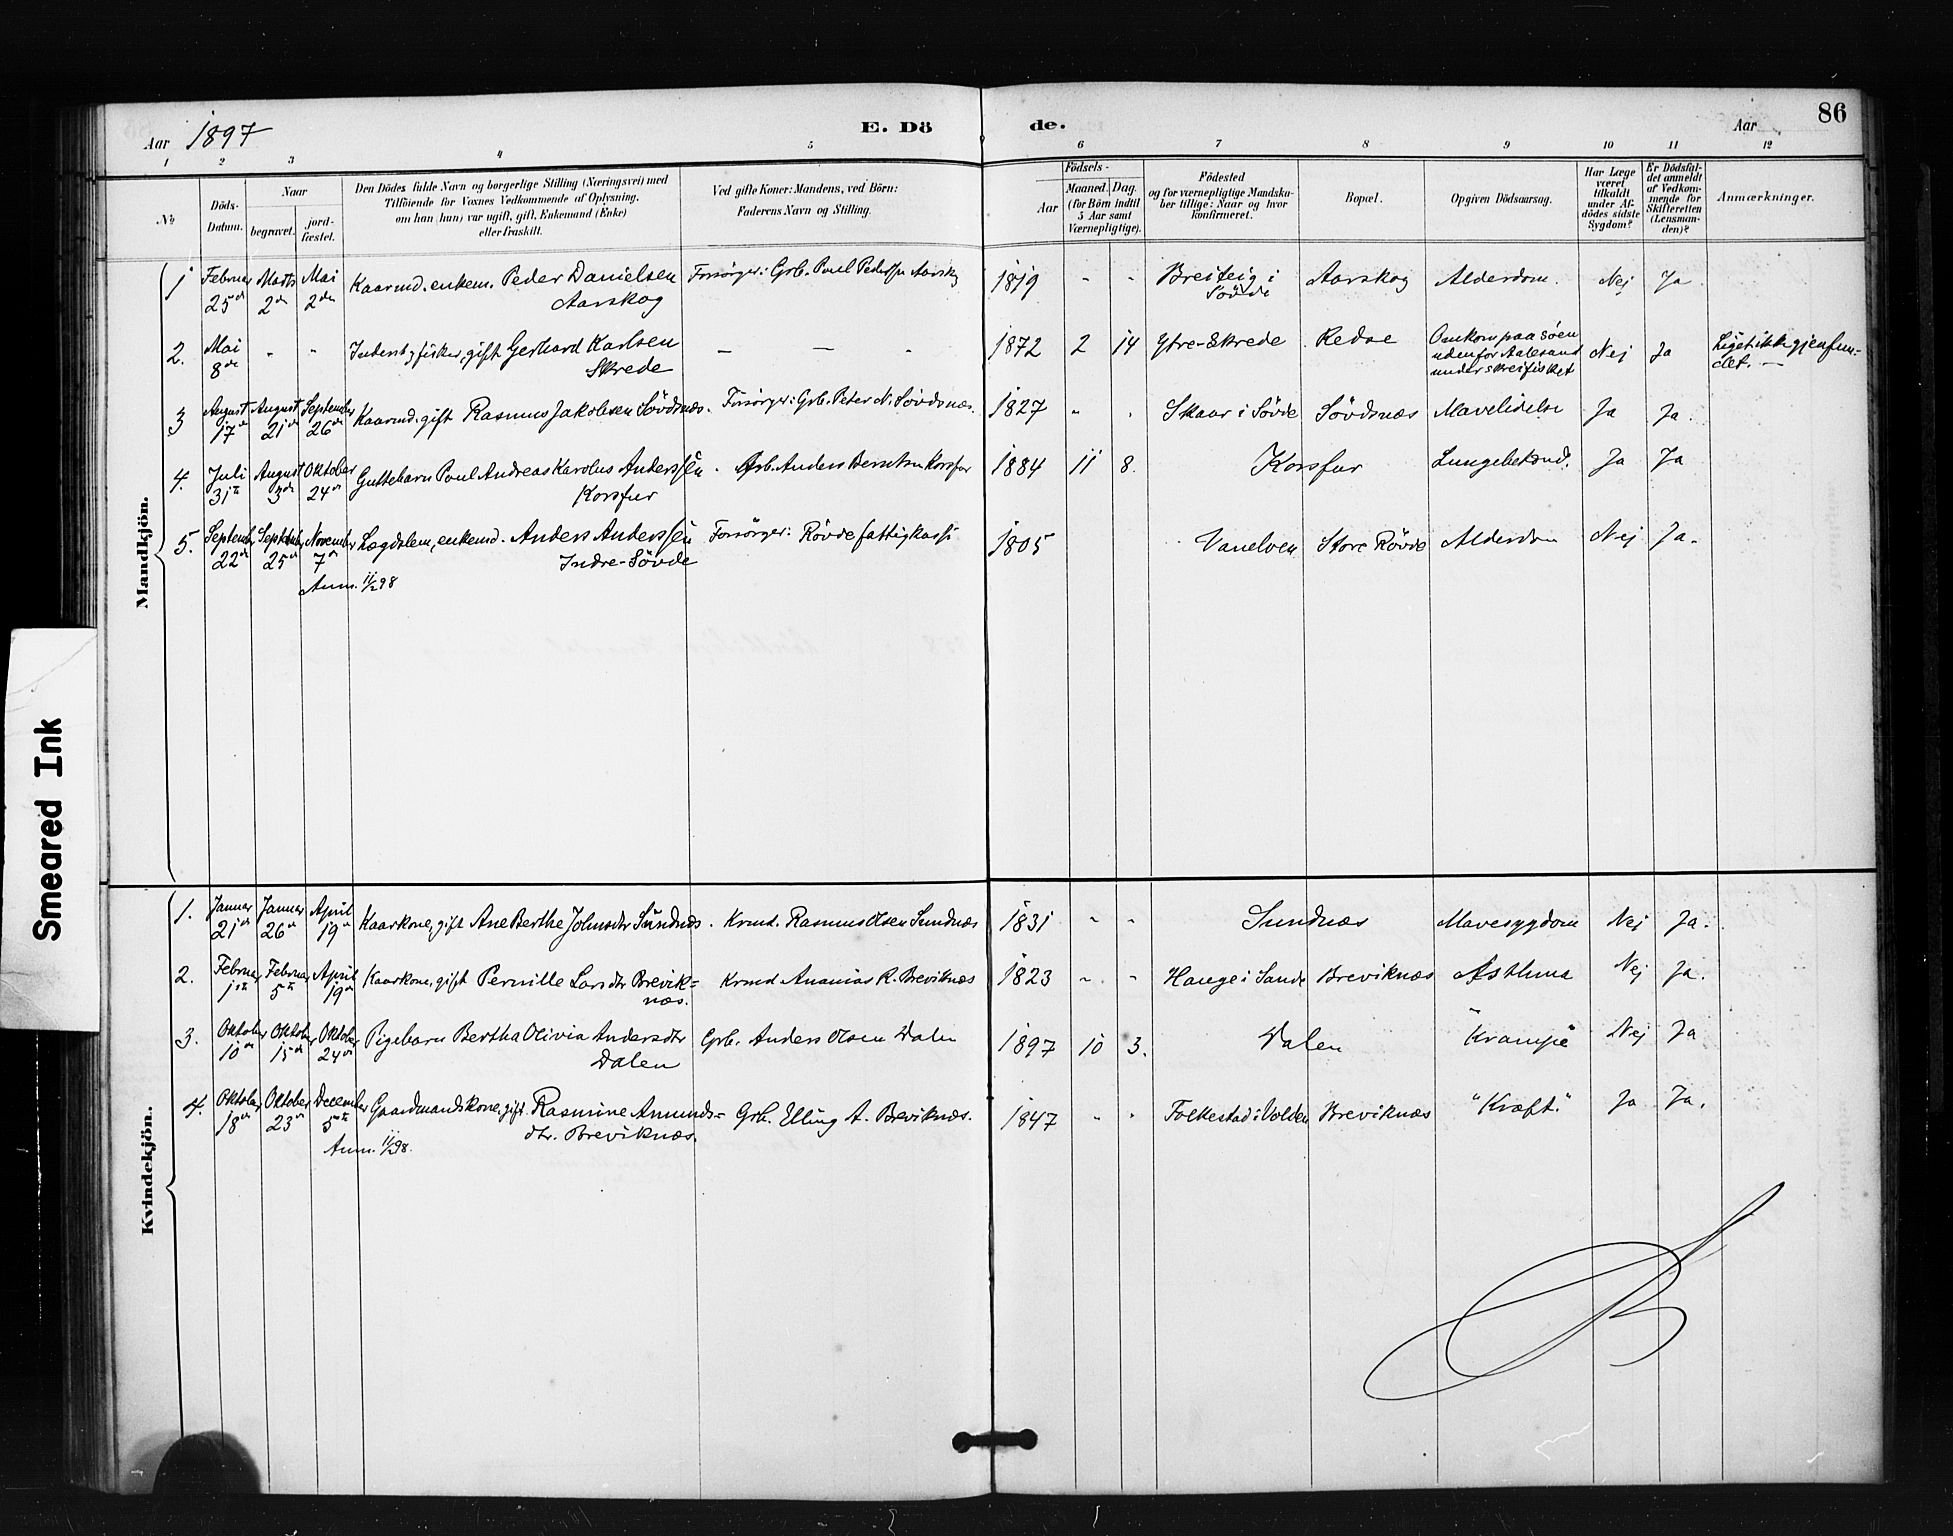 86
Aar 1897
E. Dö
de.
Aar
1 2 3 4 5 6 7 8 9 10 11 12
No
Döds-
Datum.
Naar
begravet.
jord-
fæstet.
Den Dödes fulde Navn og borgerlige Stilling (Næringsvei) med
Tilföiende for Voxnes Vedkommende af Oplysning,
om han (hun) var ugift, gift, Enkemand (Enke)
eller fraskilt.
Ved gifte Koner: Mandens, ved Börn:
Faderens Navn og Stilling.
Födsels-
Aar
Maaned. Dag.
(for Börn indtil
5 Aar samt
Værnepligtige).
Födested
og for værnepligtige Mandska-
ber tillige: Naar og hvor
Konfirmeret.
Bopæl.
Opgiven Dödsaarsag.
Har Læge
været
tilkaldt
under Af-
dödes sidste
Sygdom?
Er Dödsfal-
det anmeldt
af Vedkom-
mende for
Skifteretten
(Lensman-
den)?
Anmærkninger.
Mandkjön.
1 Februar 25de Marts 2de Mai 2den Kaarmd. enkem. Peder Danielsen Forsörger: Grb. Poul Pederssen Aarskog 1819 - - Breiteig i Aarskog Alderdom. Nej Ja
Aarskog Sövde
2. Mai 8de " " Inderst og fisker, gift Gerhard Karlsen — — - 1872 2 14 Ytre-Skrede Redse Omkom paa söen Nej Ja Liget ikke gjenfun-
Skrede udenfor Aalesund det. —
under skreifisket
3 August 17de August 21de September 26de Kaarmd. gift Rasmus Jakobsen Sövdsnæs. Forsörger: Grb. Peter N. Sövdsnæs. 1827 " . Skaar i Sövde Sövdsnæs Mavelidelse Ja Ja.
4. Juli 31te August 3de Oktober 24de Guttebarn Poul Andreas Karolus Anderssen Grb. Anders Berntsen Korsfur 1884 11 8. Korsfur Lungebetænd. Ja Ja
Korsfur
5. September 22de September 25de November 7de Lægdslem, enkemd. Anders Anderssen Forsörger: Rövde fattigkasse 1805 Vanelven Store Rövde Alderdom Nej Ja.
Indre-Sövde
Anm. 11/2 98
Kvindekjön.
1. Januar 21de Januar 26de April 19de Kaarkone, gift Ane Berthe Johnsdtr Sundnæs. Krmd. Rasmus Olsen Sundnæs 1831 - - Sundnæs Mavesygdom Nej Ja.
2. Februar 1ste Februar 5te April 19de Kaarkone, gift Pernille Larsdtr Brevik= Krmd Ananias R. Breviknæs 1823 - - Hauge i Sande Breviknæs Asthma Nej Ja.
næs.
3. Oktober 10de Oktober 15de Oktober 24de Pigebarn Bertha Olivia Andersdtr Grb. Anders Olsen Dalen 1897 10 3. Dalen "Krampe" Nej Ja
Dalen
4. Oktober 18de Oktober 23de December 5te Gaardmandskone, gift Rasmine Amunds= Grb. Elling A. Breviknæs. 1847 " " Folkestad i Volden Breviknæs "Kræft." Ja Ja.
dtr. Breviknæs.
Anm. 11/2 98.
Smeared Ink